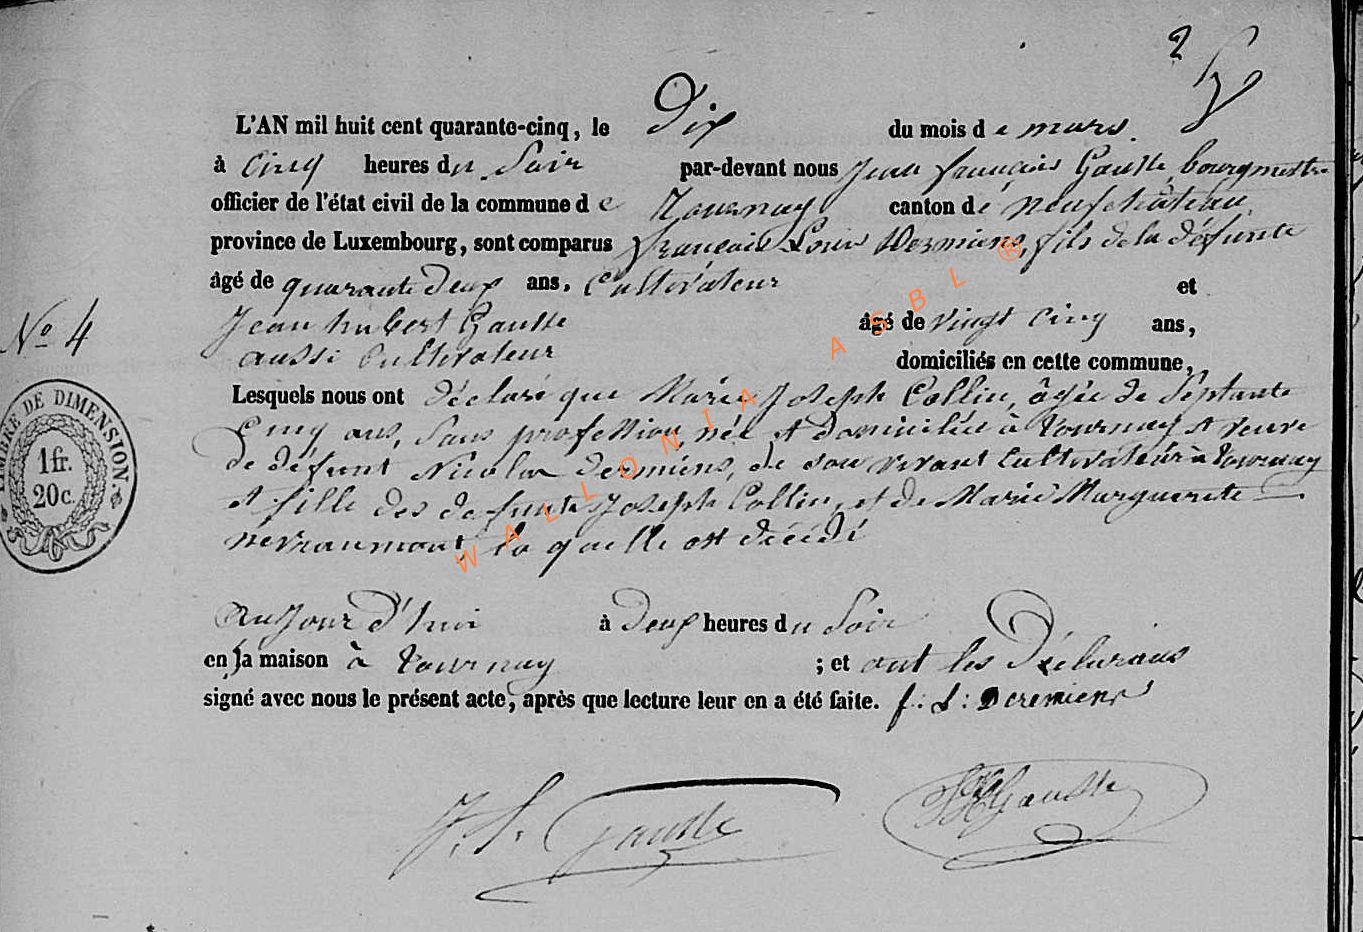 2
L'AN mil huit cent quarante-cinq, le Dix du mois de mars.
à Cinq heures du Soir par-devant nous Jean françois Gausse bourgmestre
officier de l'état civil de la commune de Tournay canton de neufchâteau
province de Luxembourg, sont comparus françois Louis Dermiens, fils de la défunte
âgé de quarante deux ans, Cultivateur et
Jean hubert Gausse âgé de vingt cinq ans,
aussi Cultivateur domiciliés en cette commune,
No 4
Lesquels nous ont déclaré que Marie Joseph Collin, âgée de Septante
Cinq ans, Sans profession née et domiciliée à Tournay et veuve
de défunt Nicolas Dermiens, de son vivant Cultivateur à Tournay
et fille des defunts Joseph Collin, et de Marie Marguerite
névraumont, la quelle est décédé
TIMBRE DE DIMENSION.
1 fr.
20 c.
Aujourd'hui à Deux heures du Soir
en la maison à Tournay ; et ont les Déclarans
signé avec nous le présent acte, après que lecture leur en a été faite. f: L: Dcremiens
J. f. Gausse
JH Gausse
WALLONIA ASBL ®